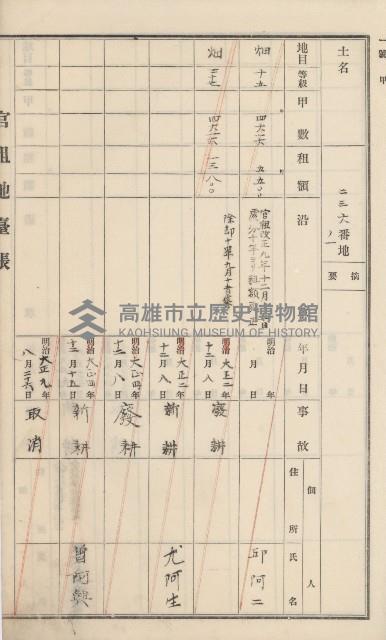 一號 甲
土名
二三六番地ノ一
摘要
地目 等級 甲數 租額 沿 年月日 事故 住所 氏名
個人
畑 十五 四六二六 五五〇
官租改正九年十二月
畑 四六二六 一三八〇〇
除却十年九月十
明治 年 月 日 邱阿二
明治大正二年十二月八日 廢耕
明治大正二年十二月八日 新耕 尤阿生
明治大正四年十二月八日 廢耕
明治大正四年十二月十五日 新耕 曾阿興
明治大正九年八月二十六日 取消
官租地臺帳
高雄市立歷史博物館
KAOHSIUNG MUSEUM OF HISTORY